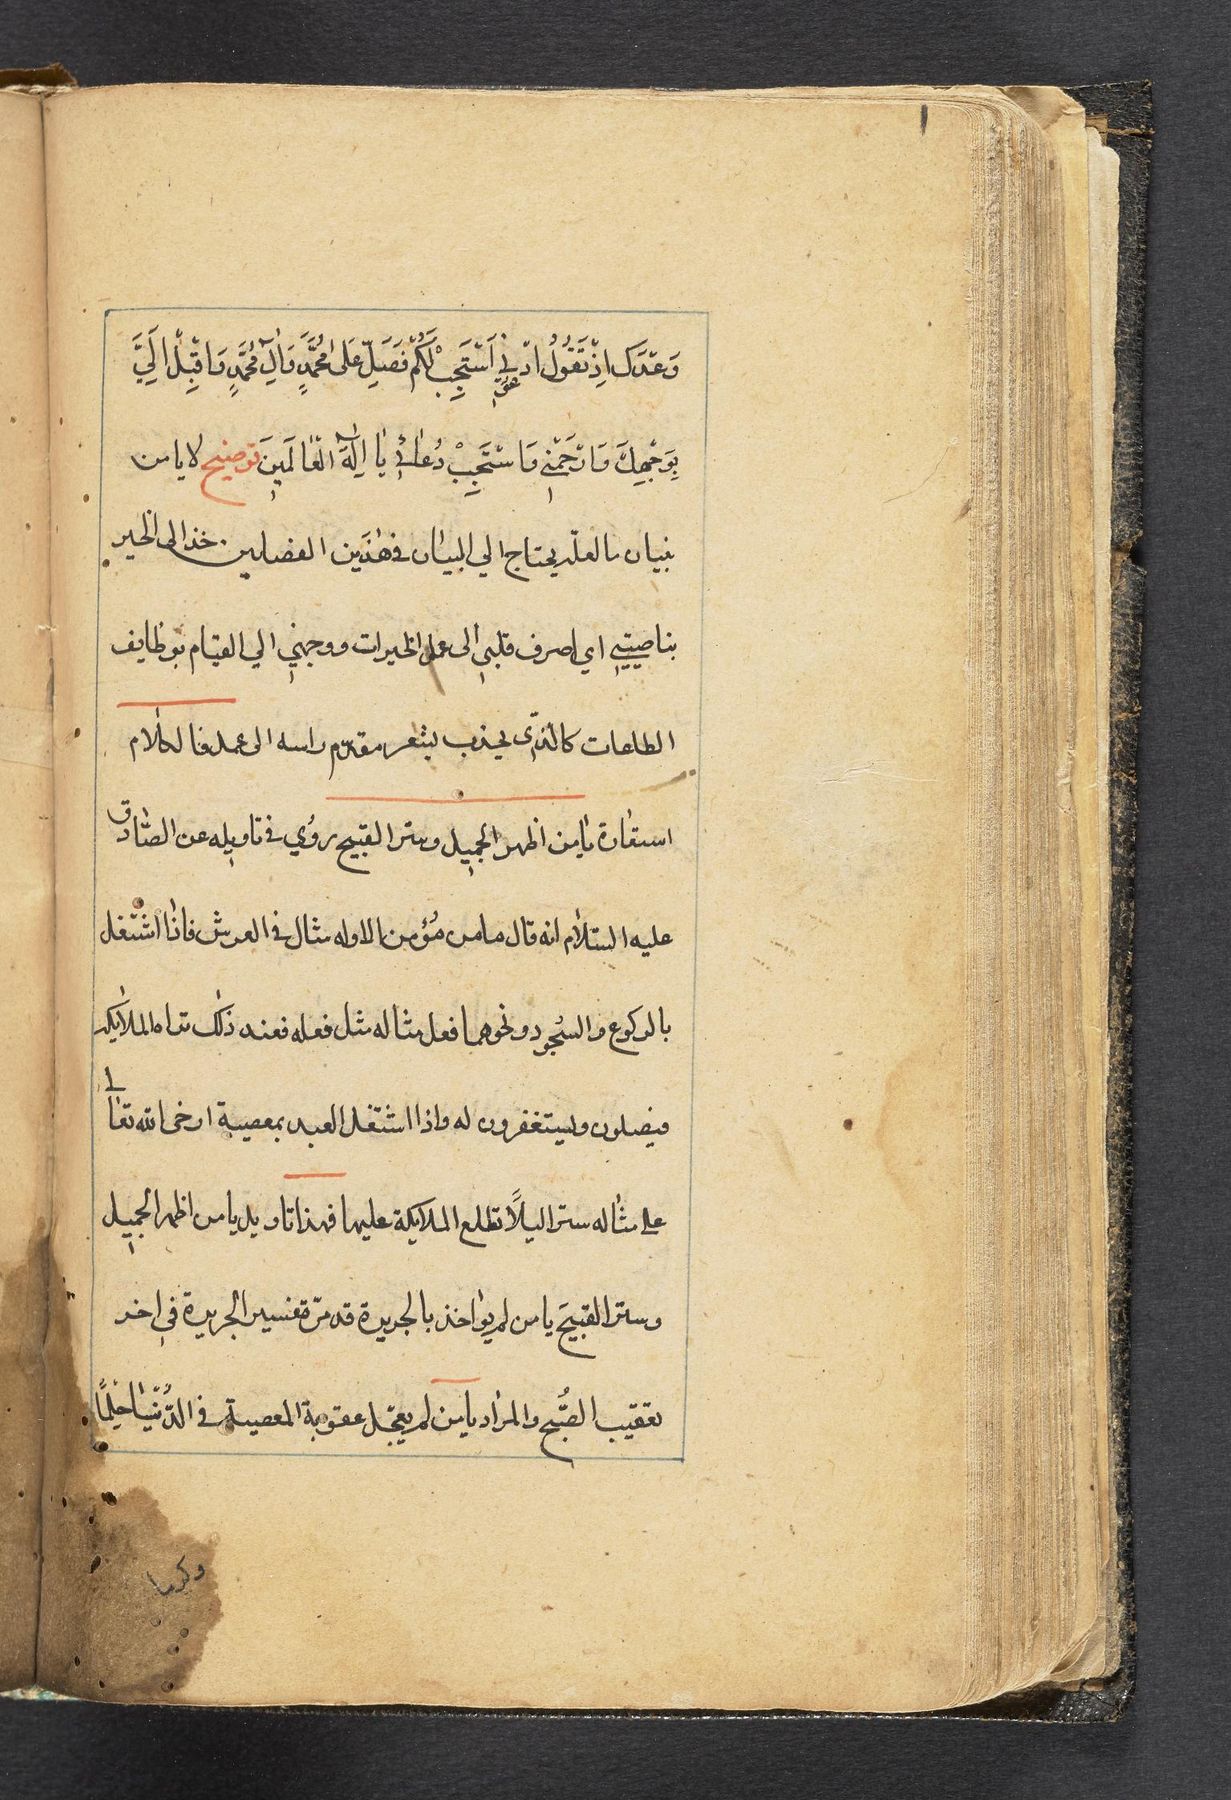 وَعْدَكَ اِذْ تَقُولُ ادْعُونِي اَسْتَجِبْ لَكُمْ فَصَلِّ عَلى مُحَمَّدٍ وَالِ مُحَمَّدٍ وَاَقْبِلْ اِلَيَّ
بِوَجْهِكَ وَارْحَمْنِي وَاسْتَجِبْ دُعائِي يا اِلهَ الْعالَمِينَ توضيح لا يا من
يحتاج الي البيان في هذين الفصلين خذ الى الخير
بناصيتي اي اصرف قلبي الى عمل الخيرات ووجهني الي القيام بوظايف
الطاعات كالذي يجذب بشعر مقدّم راسه الى عمل فالكلام
استعارة يا من اظهر الجميل وستر القبيح روي في تاويله عن الصّادق
عليه السّلام انه قال ما من مُؤمن الا وله مثال في العرش فاذا اشتغل
بالركوع والسُجود ونحوهما فعل مثاله مثل فعله فعند ذلك تراه الملايكة
فيصلون ويستغفرون له واذا اشتغل العبد بمعصية ارخى الله تعالى
على مثاله ستراً ليلاً تطلع الملايكة عليها فهذا تاويل يا من اظهر الجميل
وستر القبيح يا من لم يواخذ بالجريرة قد مرّ تفسير الجريرة في اخر
تعقيب الصُّبح والمراد يا من لم يعجّل عقوبة المعصية في الدُّنْيا حِلْماً
وكرما